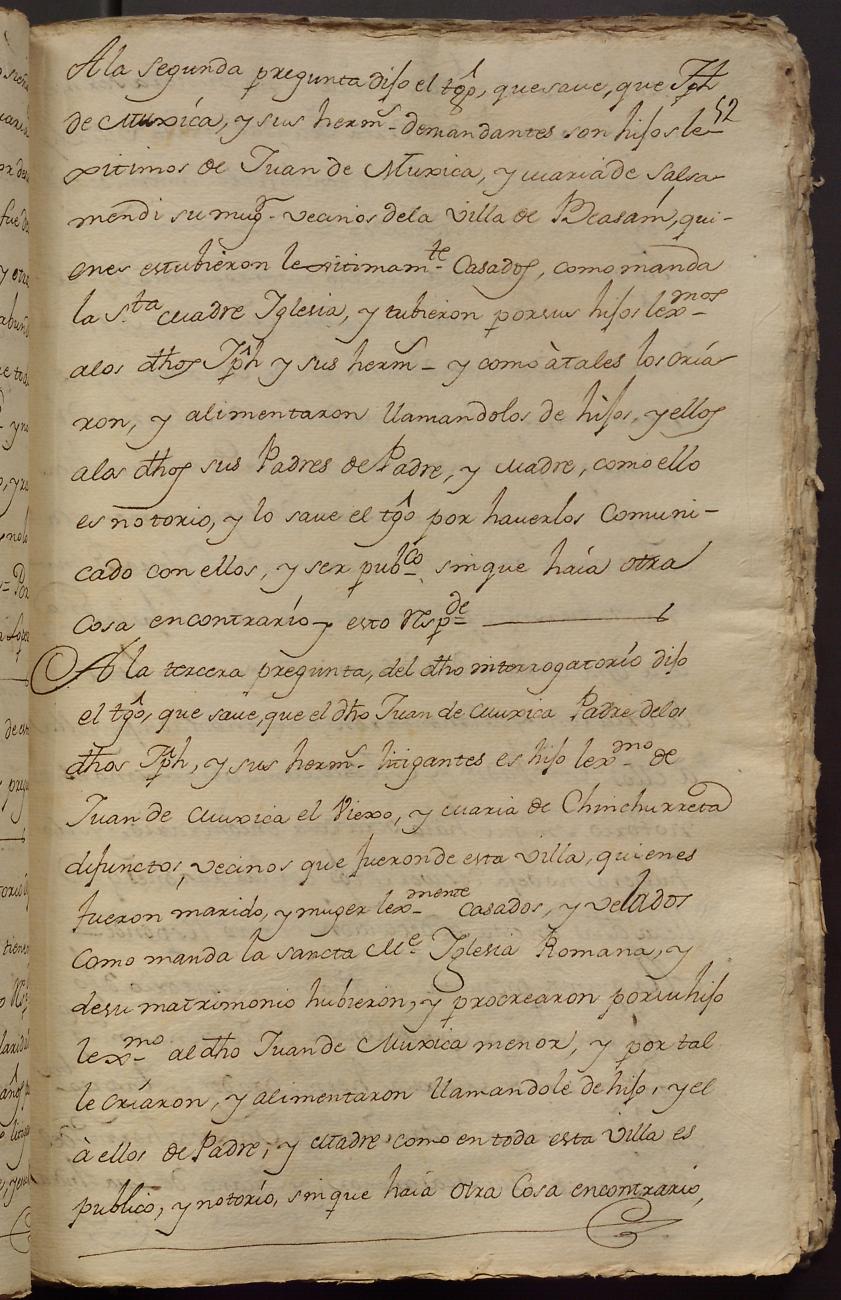 A la segunda pregunta dijo el tgô, que save, que Jph
52
de Muxica, y sus herms demandantes son hijos le-
xitimos de Juan de Muxica, y maria de Salsa-
mendi su mugr vecinos dela villa de Beasaín, qui-
enes estubieron lexitimamte Casados, como manda
la Sta Madre Iglesia, y tubieron por sus hijos lexmos
alos dhos Jph y sus herms y como à tales los cría-
ron, y alimentaron llamandolos de hijos, y ellos
alos dhos sus Padres de Padre, y Madre, como ello
es notorio, y lo save el tgô por haverlos Comuni-
cado con ellos, y ser pubco sin que haía otra
Cosa encontrarío y esto Respde
A la tercera pregunta, del dho interrogatorío dijo
el tgô, que save, que el dho Juan de Muxica Padre delos
dhos Jph, y sus herms litigantes es hijo lexmo de
Juan de Muxica el Viexo, y Maria de Chinchurreta
difunctos, vecinos que fueron de esta villa, quienes
fueron marido, y muger lexmente casados, y velados
como manda la sancta Me Iglesia Romana, y
desu matrimonio hubieron, y procrearon por su hijo
lexmo al dho Juan de Muxica menor, y por tal
le críaron, y alimentaron llamandole de hijo, y el
à ellos de Padre, y Madre como en toda esta villa es
publico, y notorío, sin que haía otra Cosa encontrario,